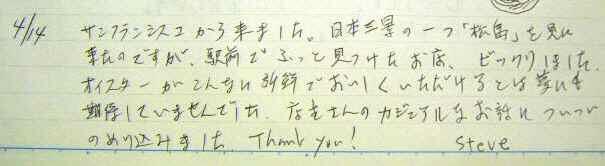 4/14 サンフランシスコから来ました。日本三景の一つ「松島」を見に
来たのですが、駅前でふっと見つけたお店、ビックリしました。
オイスターがこんなに新鮮でおいしくいただけるとは夢にも
期待していませんでした。店主さんのカジュアルなお話についつい
のめり込みました。Thank you! Steve